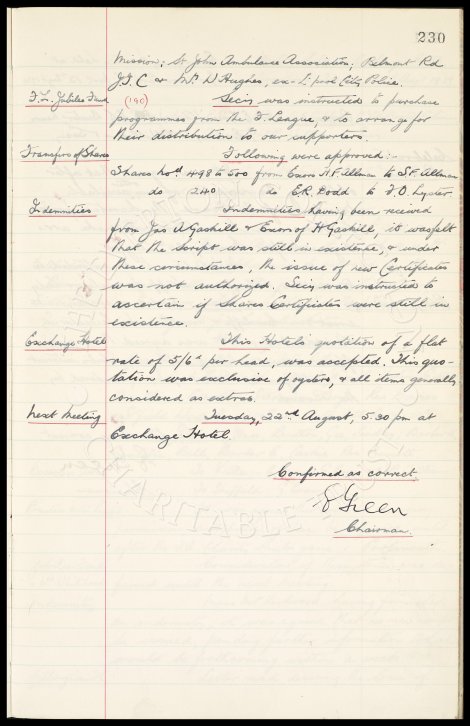 230
Mission; St John Ambulance Association; Belmont Rd
J.I.C or Mr D Hughes, ex-L'pool City Police.
F.L. Jubilee Fund (190) Secy was instructed to purchase
programmes from the F. League, & to arrange for
their distribution to our supporters.
Transfers of Shares Following were approved:-
Shares nos 498 to 500 from Exors A.F. Allman to S.F. Allman
do 240 do E.R. Dodd to F.O. Lyster
Indemnities Indemnities having been received
from Jas A Gaskill & Exors of H Gaskill, it was felt
that the Script was still in existence, & under
these circumstances, the issue of new Certificates
was not authorised. Secy was instructed to
ascertain if Shares Certificates were still in
existence.
Exchange Hotel This Hotel's quotation of a flat
rate of 5/6d per head, was accepted. This quo-
tation was exclusive of oysters, & all items generally
considered as extras.
Next Meeting Tuesday, 22nd August, 5.30 pm at
Exchange Hotel.
Confirmed as correct
Green
Chairman.
CHARITABLE